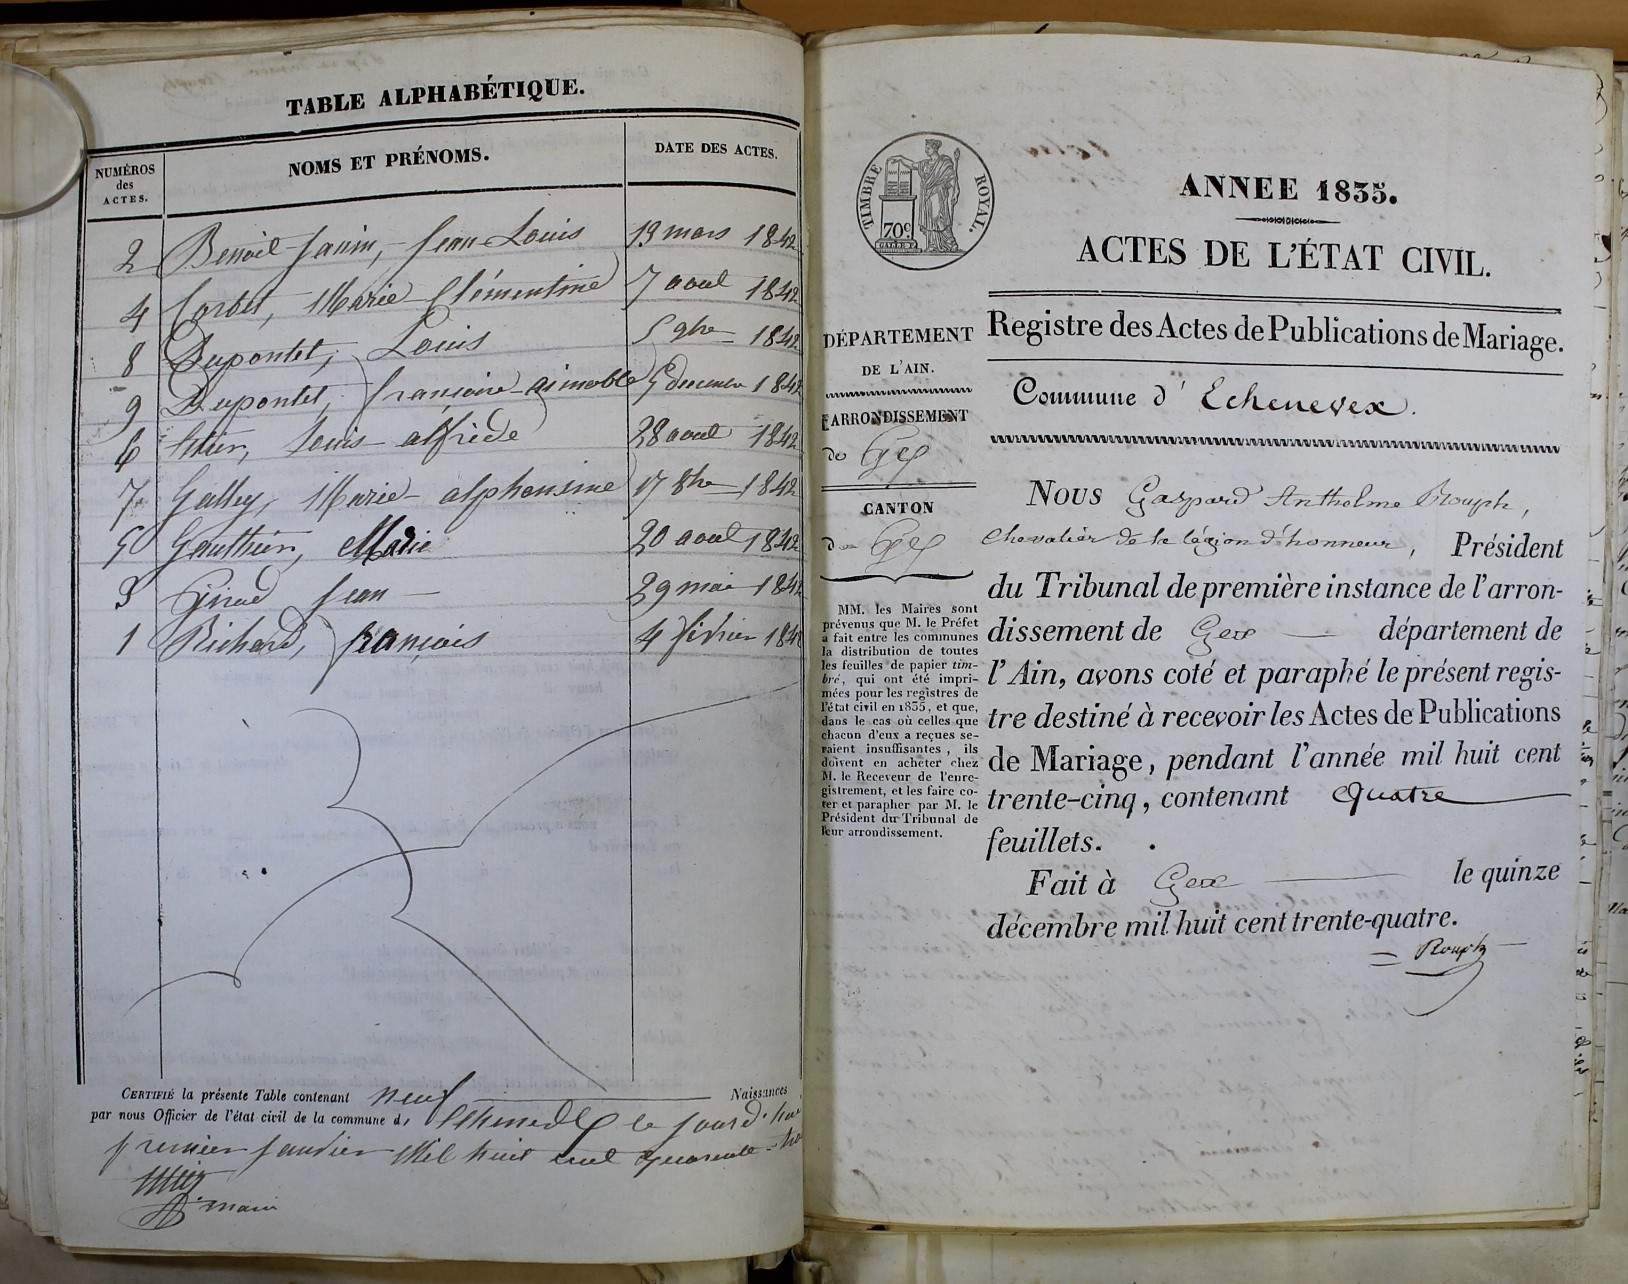 TABLE ALPHABÉTIQUE.
NUMÉROS des ACTES.
NOMS ET PRÉNOMS.
DATE DES ACTES.
2 Benoit-Janin, Jean-Louis 13 mars 1842
4 Corbet, Marie Clémentine 7 aout 1842
8 Dupontet, Louis 5 9bre 1842
9 Dupontet, françoise aimable 5 décembre 1842
6 Louis alfrède 28 aout 1842
7 Gallay, Marie-alphonsine 17 8bre 1842
5 Gauthier, Marie 20 aout 1842
3 Girod Jean 29 mai 1842
1 Richard, françois 4 février 184
CERTIFIÉ la présente Table contenant neuf Naissances,
par nous Officier de l'état civil de la commune d, Echenevex le jourd'hui
premier janvier Mil huit cent quarante-trois
maire
TIMBRE ROYAL.
70c
ANNEE 1835.
ACTES DE L'ÉTAT CIVIL.
DÉPARTEMENT
DE L'AIN.
ARRONDISSEMENT
de Gex
CANTON
de Gex
MM. les Maires sont
prévenus que M. le Préfet
a fait entre les communes
la distribution de toutes
les feuilles de papier tim-
bré, qui ont été impri-
mées pour les registres de
l'état civil en 1835, et que,
dans le cas où celles que
chacun d'eux a reçues se-
raient insuffisantes, ils
doivent en acheter chez
M. le Receveur de l'enre-
gistrement, et les faire co-
ter et parapher par M. le
Président du Tribunal de
leur arrondissement.
Registre des Actes de Publications de Mariage.
Commune d'Echenevex.
Nous Gaspard Anthelme Rouph,
chevalier de la légion d'honneur, Président
du Tribunal de première instance de l'arron-
dissement de Gex département de
l'Ain, avons coté et paraphé le présent regis-
tre destiné à recevoir les Actes de Publications
de Mariage, pendant l'année mil huit cent
trente-cinq, contenant quatre
feuillets.
Fait à Gex le quinze
décembre mil huit cent trente-quatre.
Rouph